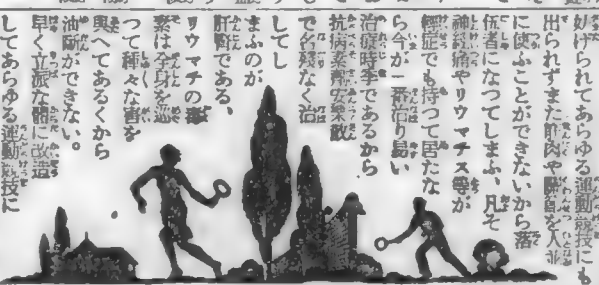 妨けられてあらゆる運動競技にも
出られずまた筋肉や關節を人並
に使ふことができないから落
伍者になつてしまふ、凡そ
神經痛やリウマチス等が
輕症でも持つて居たな
ら今が一番治り易い
治療時季であるから
抗病素劑で
で名殘なく治
してし
まふのが
肝腎である、
リウマチの毒
素は全身を
つて種々な害を
與へてあるくから
油斷ができない。
早く立派な體に改造
してあらゆる運動競技に